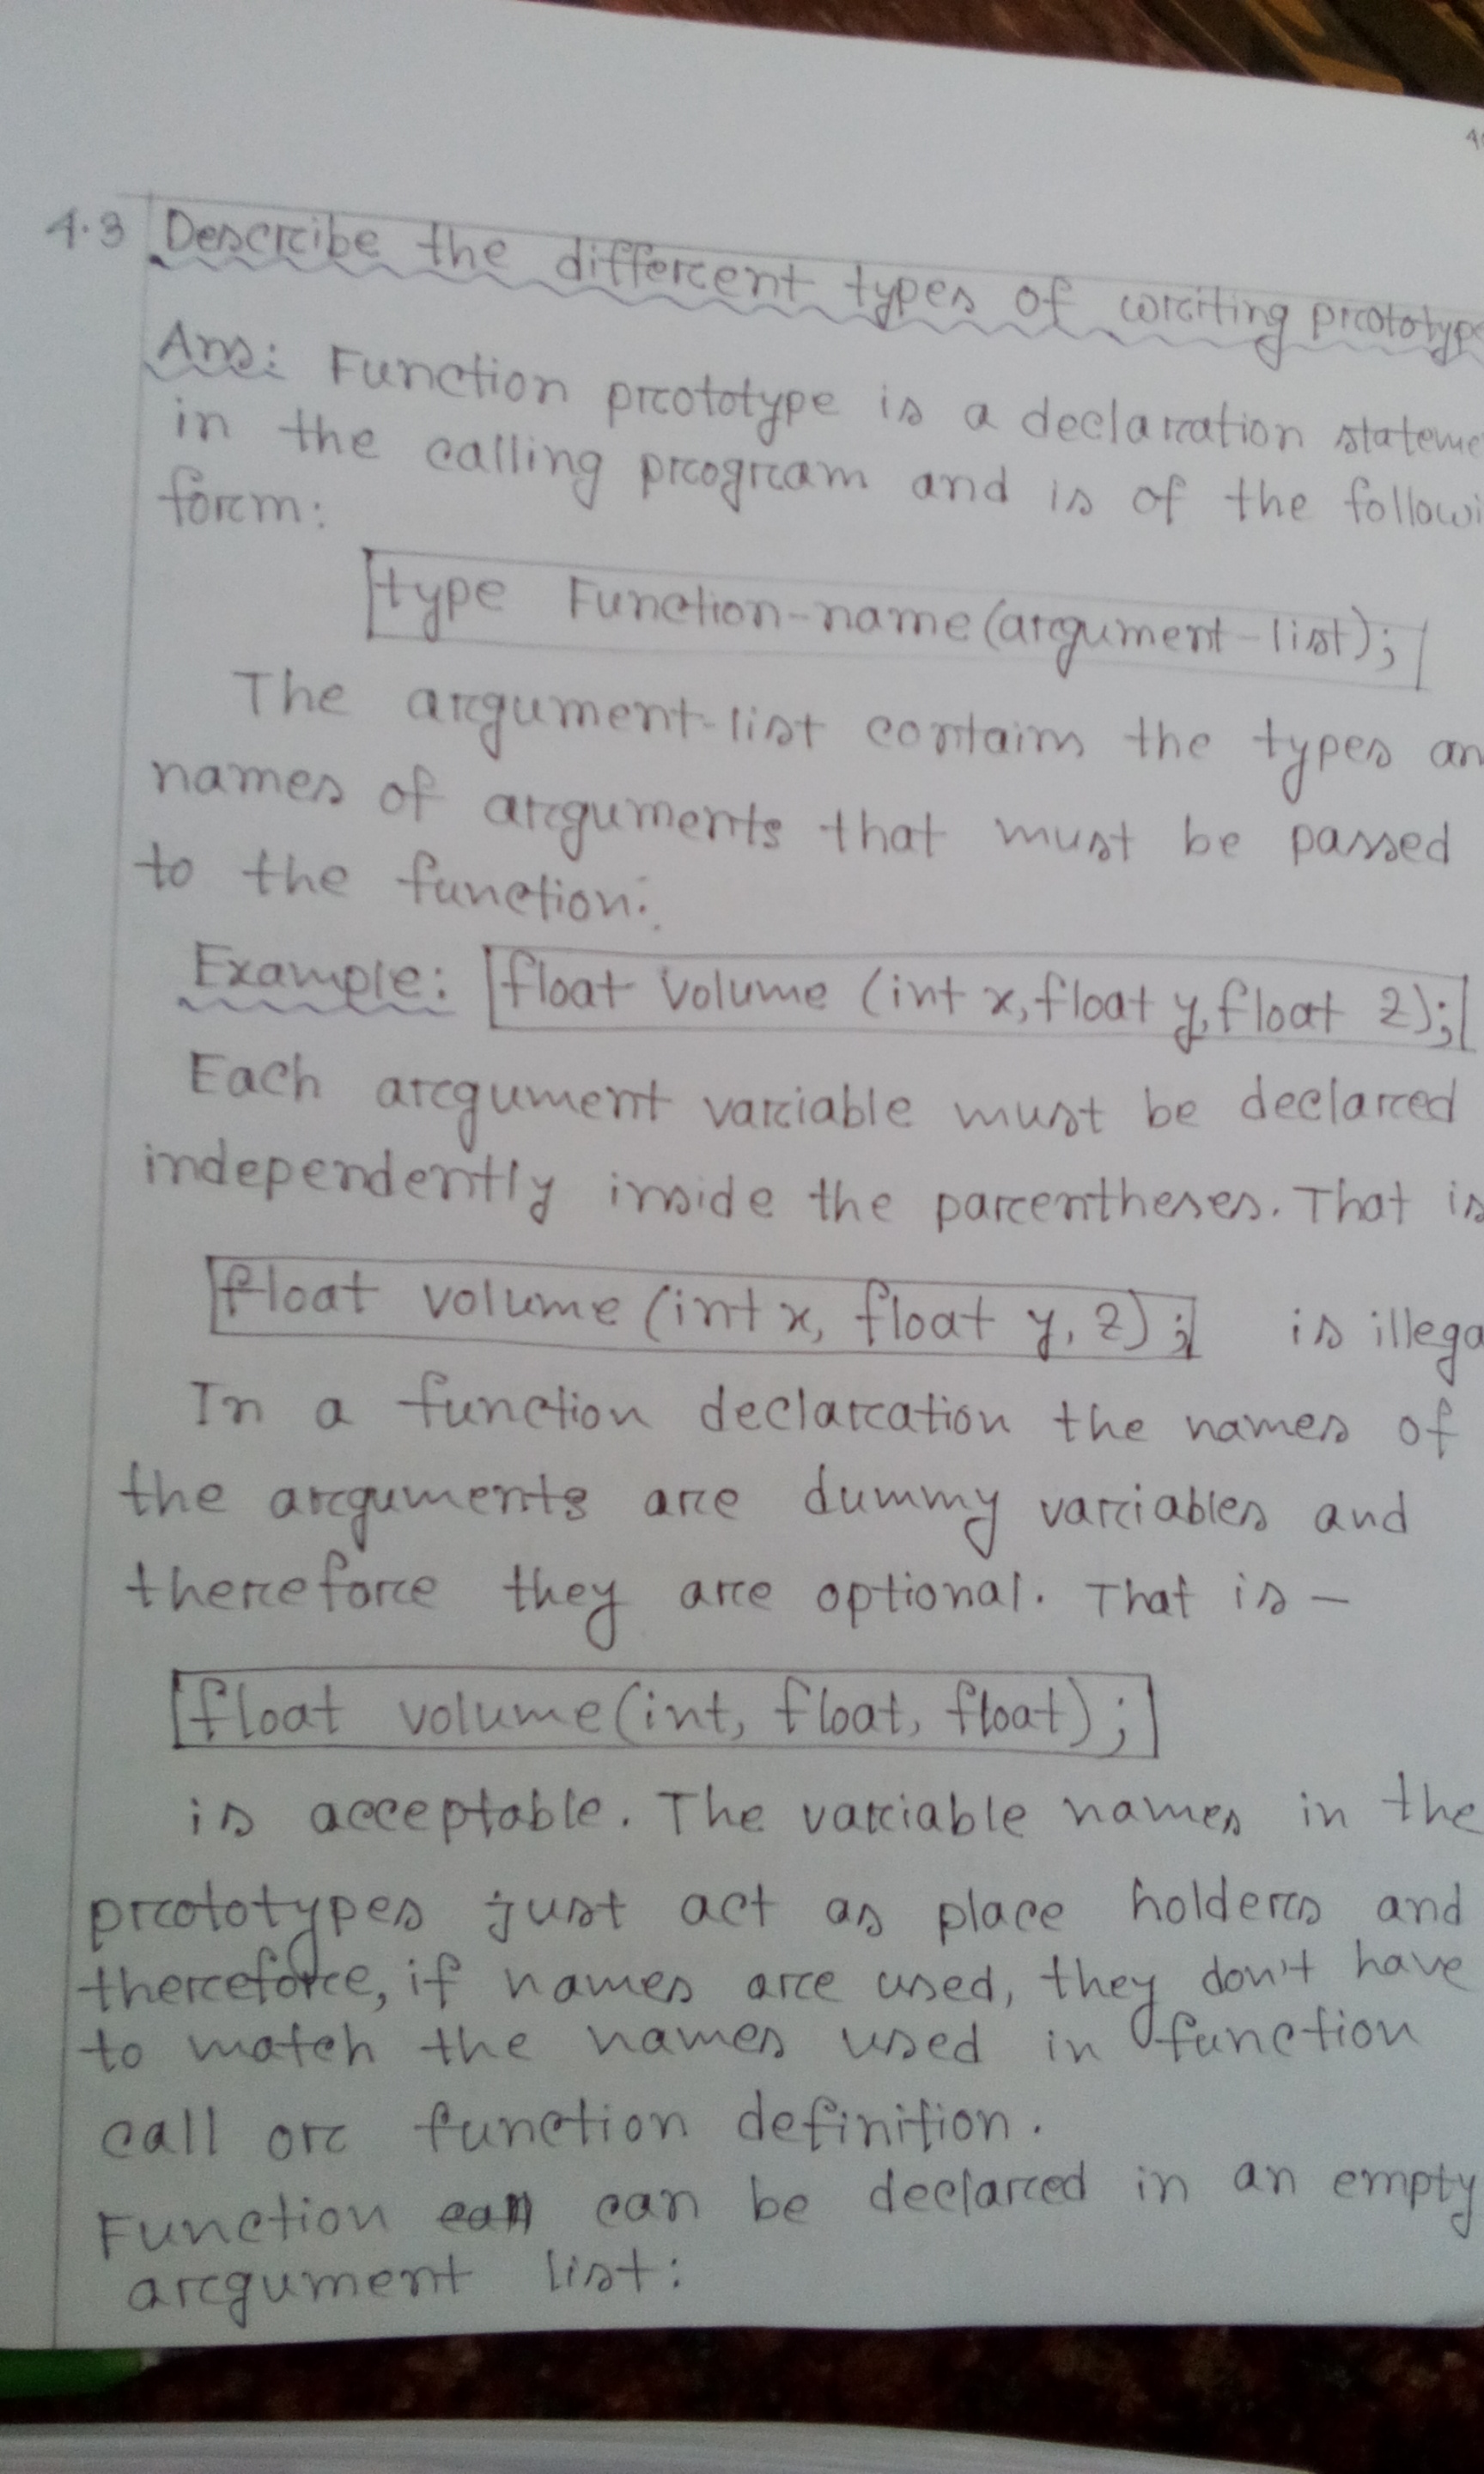 4.3 Describe the different types of writing prototype
Ans: Function prototype is a declaration stateme
in the calling program and is of the followi
form:
type Function-name(argument-list);
The argument-list contains the types an
names of arguments that must be passed
to the function:
Example: float Volume (int x, float y, float z);
Each argument variable must be declared
independently inside the parentheses. That is
float volume (int x, float y, z); is illega
In a function declaration the names of
the arguments are dummy variables and
therefore they are optional. That is —
float volume(int, float, float);
is acceptable. The variable names in the
prototypes just act as place holders and
therefore, if names are used, they don't have
to match the names used in function
call or function definition.
Function can can be declared in an empty
argument list: